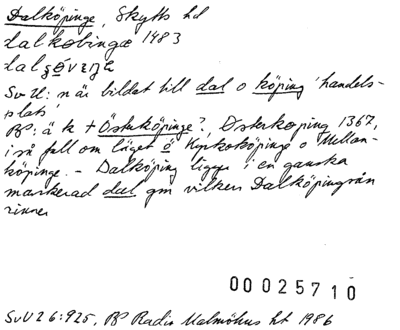 Dalköpinge, Skytts hd
dalkøbinge 1483
SvU: n är bildat till dal o köping 'handels-
plats'
BP: ä k + Österköpinge?, Østerkøping 1367,
i så fall om läget ö Kyrkoköpinge o Mellan-
köpinge. - Dalköping ligger i en ganska
markerad dal gm vilken Dalköpingeån
rinner
00025710
SvU 26:925, BP Radio Malmöhus ht 1986